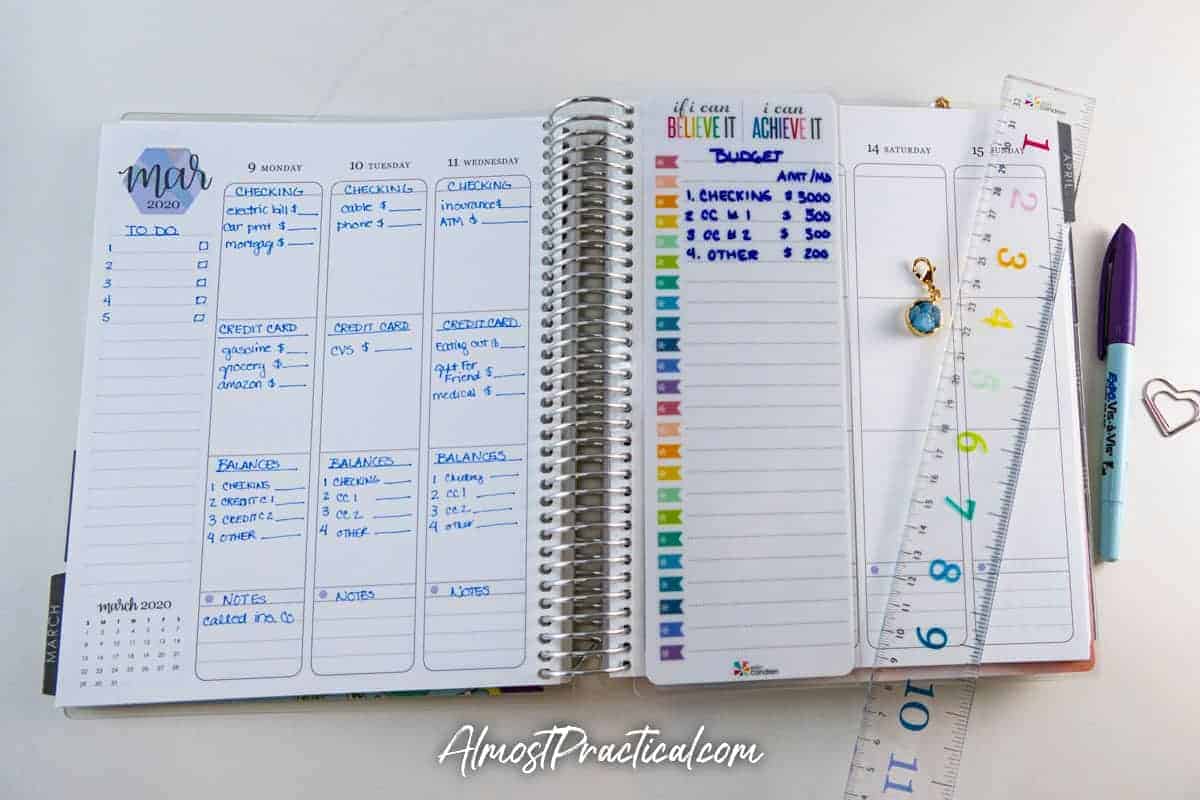 mar
2020
TO DO
1
2
3
4
5
march 2020
S M T W T F S
1 2 3 4 5 6 7
8 9 10 11 12 13 14
15 16 17 18 19 20 21
22 23 24 25 26 27 28
29 30 31
MARCH
9 MONDAY
CHECKING
electric bill $
car pmt $
mortgag $
CREDIT CARD
gasoline $
grocery $
amazon $
BALANCES
1 CHECKING
2 CREDIT C 1
3 CREDIT C 2
4 OTHER
NOTES
called ins. Co
10 TUESDAY
CHECKING
cable $
phone $
CREDIT CARD
CVS $
BALANCES
1 CHECKING
2 CC 1
3 CC 2
4 OTHER
NOTES
11 WEDNESDAY
CHECKING
insurance $
ATM $
CREDIT CARD
Eating out $
gift For
Friend $
medical $
BALANCES
1 Checking
2 CC 1
3 CC 2
4 other
NOTES
if i can
BELIEVE IT
i can
ACHIEVE IT
BUDGET
AMT/MO
1. CHECKING $ 3000
2 CC # 1 $ 500
3 CC # 2 $ 300
4. OTHER $ 200
erin condren
14 SATURDAY
15 SUNDAY
APRIL
1
2
3
4
5
6
7
8
9
10
11
Expo Vis-à-Vis
AlmostPractical.com